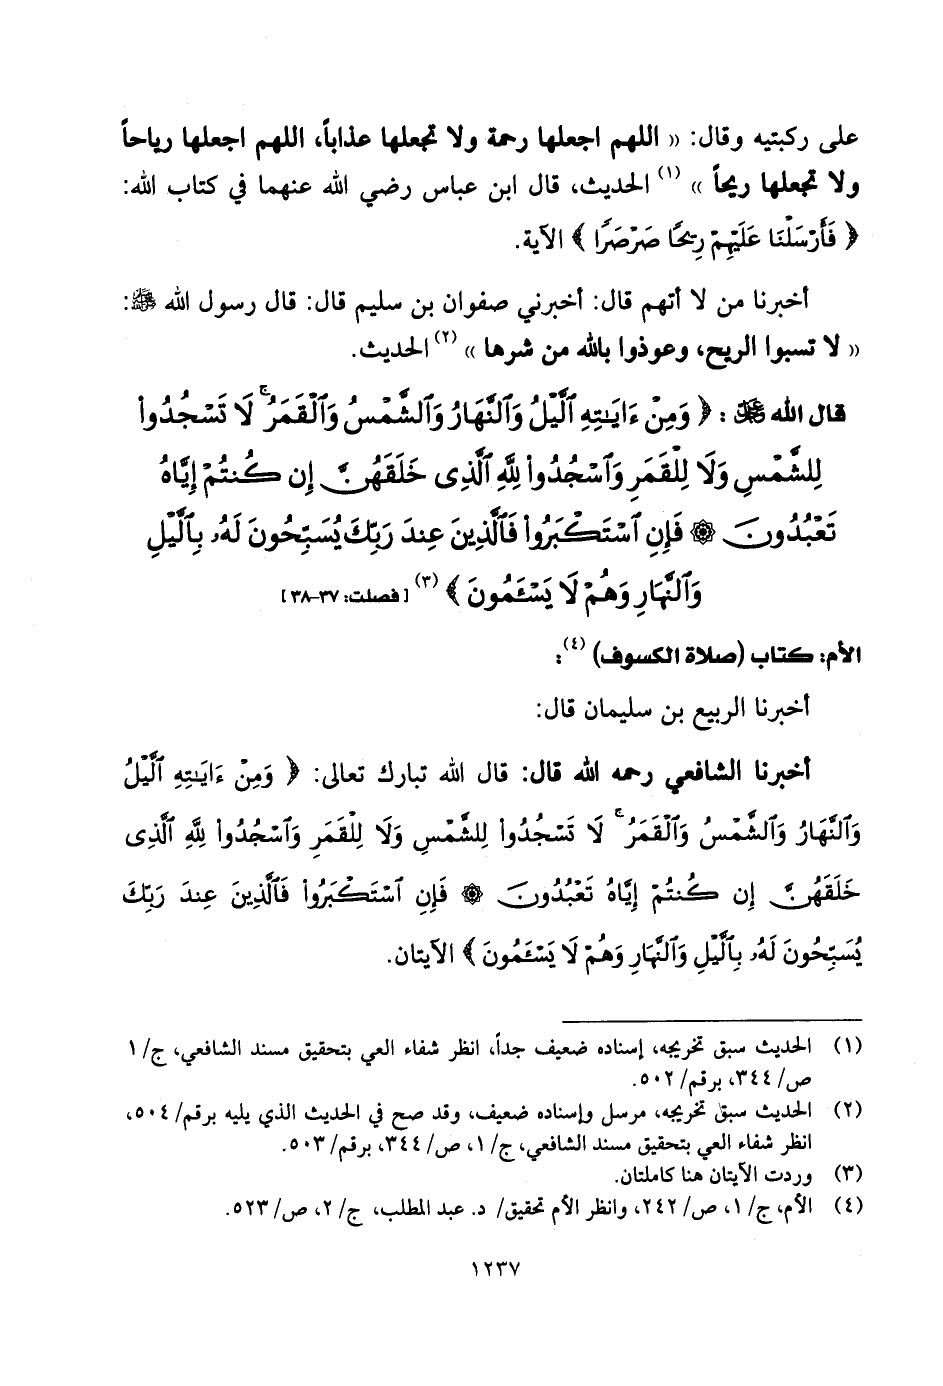 على ركبتيه وقال: « اللهم اجعلها رحمة ولا تجعلها عذاباً، اللهم اجعلها رياحاً
ولا تجعلها ريحاً » (١) الحديث، قال ابن عباس رضي الله عنهما في كتاب الله:
﴿ فَأَرْسَلْنَا عَلَيْهِمْ رِيحًا صَرْصَرًا ﴾ الآية.
أخبرنا من لا أتهم قال: أخبرني صفوان بن سليم قال: قال رسول الله ﷺ:
« لا تسبوا الريح، وعوذوا بالله من شرها » (٢) الحديث.
قال الله ﷻ : ﴿ وَمِنْ ءَايَـٰتِهِ ٱلَّيْلُ وَٱلنَّهَارُ وَٱلشَّمْسُ وَٱلْقَمَرُ ۚ لَا تَسْجُدُوا۟
لِلشَّمْسِ وَلَا لِلْقَمَرِ وَٱسْجُدُوا۟ لِلَّهِ ٱلَّذِى خَلَقَهُنَّ إِن كُنتُمْ إِيَّاهُ
تَعْبُدُونَ ۞ فَإِنِ ٱسْتَكْبَرُوا۟ فَٱلَّذِينَ عِندَ رَبِّكَ يُسَبِّحُونَ لَهُۥ بِٱلَّيْلِ
وَٱلنَّهَارِ وَهُمْ لَا يَسْـَٔمُونَ ﴾ (٣) [فصلت: ٣٧-٣٨]
الأم: كتاب (صلاة الكسوف) (٤):
أخبرنا الربيع بن سليمان قال:
أخبرنا الشافعي رحمه الله قال: قال الله تبارك تعالى: ﴿ وَمِنْ ءَايَـٰتِهِ ٱلَّيْلُ
وَٱلنَّهَارُ وَٱلشَّمْسُ وَٱلْقَمَرُ ۚ لَا تَسْجُدُوا۟ لِلشَّمْسِ وَلَا لِلْقَمَرِ وَٱسْجُدُوا۟ لِلَّهِ ٱلَّذِى
خَلَقَهُنَّ إِن كُنتُمْ إِيَّاهُ تَعْبُدُونَ ۞ فَإِنِ ٱسْتَكْبَرُوا۟ فَٱلَّذِينَ عِندَ رَبِّكَ
يُسَبِّحُونَ لَهُۥ بِٱلَّيْلِ وَٱلنَّهَارِ وَهُمْ لَا يَسْـَٔمُونَ ﴾ الآيتان.
(١) الحديث سبق تخريجه، إسناده ضعيف جداً، انظر شفاء العي بتحقيق مسند الشافعي، ج/ ١
ص/ ٣٤٤، برقم/ ٥٠٢.
(٢) الحديث سبق تخريجه، مرسل وإسناده ضعيف، وقد صح في الحديث الذي يليه برقم/ ٥٠٤،
انظر شفاء العي بتحقيق مسند الشافعي، ج/ ١، ص/ ٣٤٤، برقم/ ٥٠٣.
(٣) وردت الآيتان هنا كاملتان.
(٤) الأم، ج/ ١، ص/ ٢٤٢، وانظر الأم تحقيق/ د. عبد المطلب، ج/ ٢، ص/ ٥٢٣.
١٢٣٧